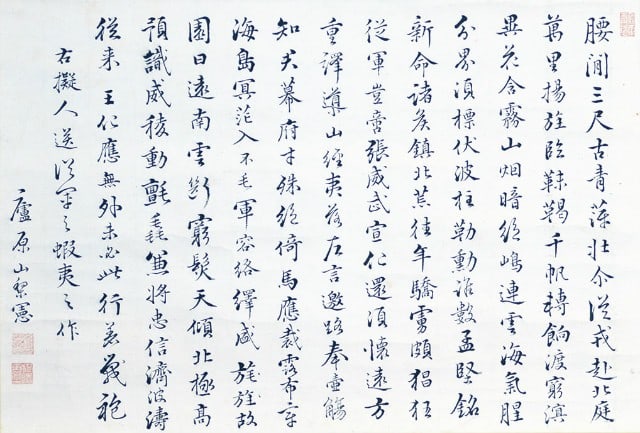 腰間三尺古青萍壯尒從戎赴北庭
萬里揚旌臨靺鞨千帆轉餉渡窮溟
異花含霧山烟暗絕嶋連雲海氣腥
分界須標伏波柱勒勳誰數孟堅銘
新命諸侯鎮北荒往年驕虜頗猖狂
從軍豈啻張威武宣化還須懷遠方
重譯導山經夷落左言邀路奉壺觴
知君幕府才殊絕倚馬應裁露布章
海島冥茫入不毛軍容絡繹盛旌旄故
園日遠南雲斷窮髮天傾北極高
預識威稜動氈毳兼將忠信濟波濤
從来王化應無外未必此行著戰袍
右擬人送從軍之蝦夷之作
廬原山梨憲